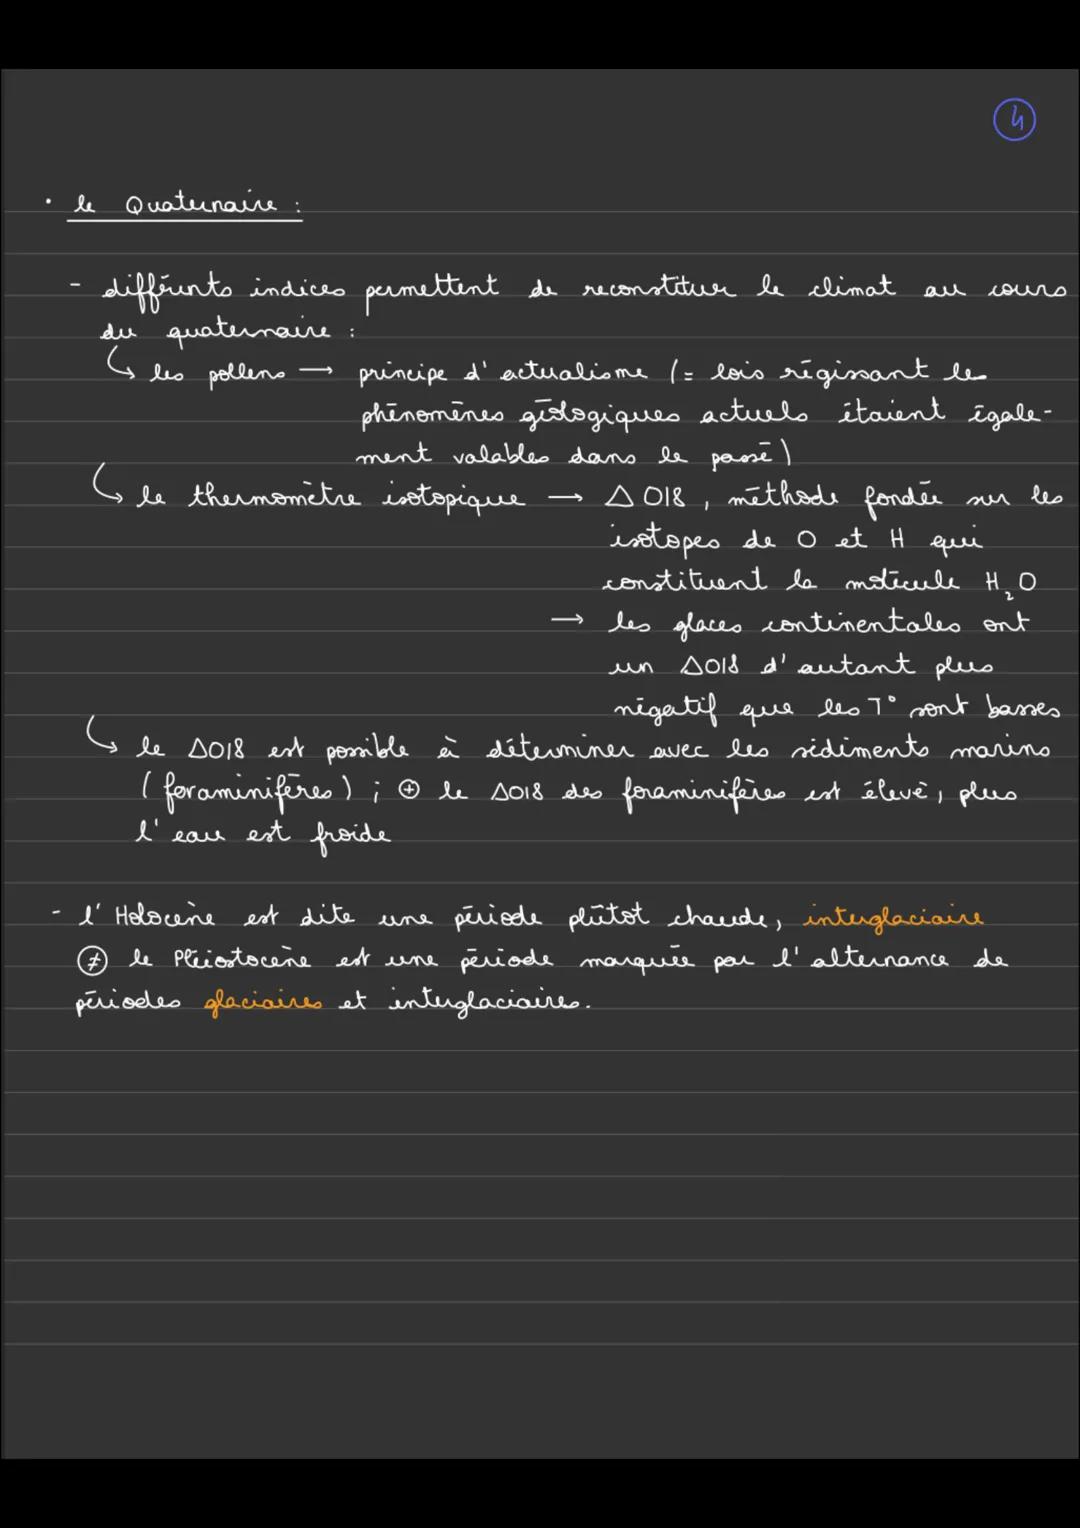 4
• le Quaternaire :
- différents indices permettent de reconstituer le climat au cours
du quaternaire :
↳ les pollens → principe d'actualisme (= lois régissant les
phénomènes géologiques actuels étaient égale-
ment valables dans le passé)
↳ le thermomètre isotopique → △ O18, méthode fondée sur les
isotopes de O et H qui
constituent la molécule H₂O
→ les glaces continentales ont
un △O18 d'autant plus
négatif que les T° sont basses
↳ le △O18 est possible à déterminer avec les sédiments marins
(foraminifères) ; ⊕ le △O18 des foraminifères est élevé, plus
l'eau est froide
- l'Holocène est dite une période plutôt chaude, interglaciaire
≠ le Pléistocène est une période marquée par l'alternance de
périodes glaciaires et interglaciaires.